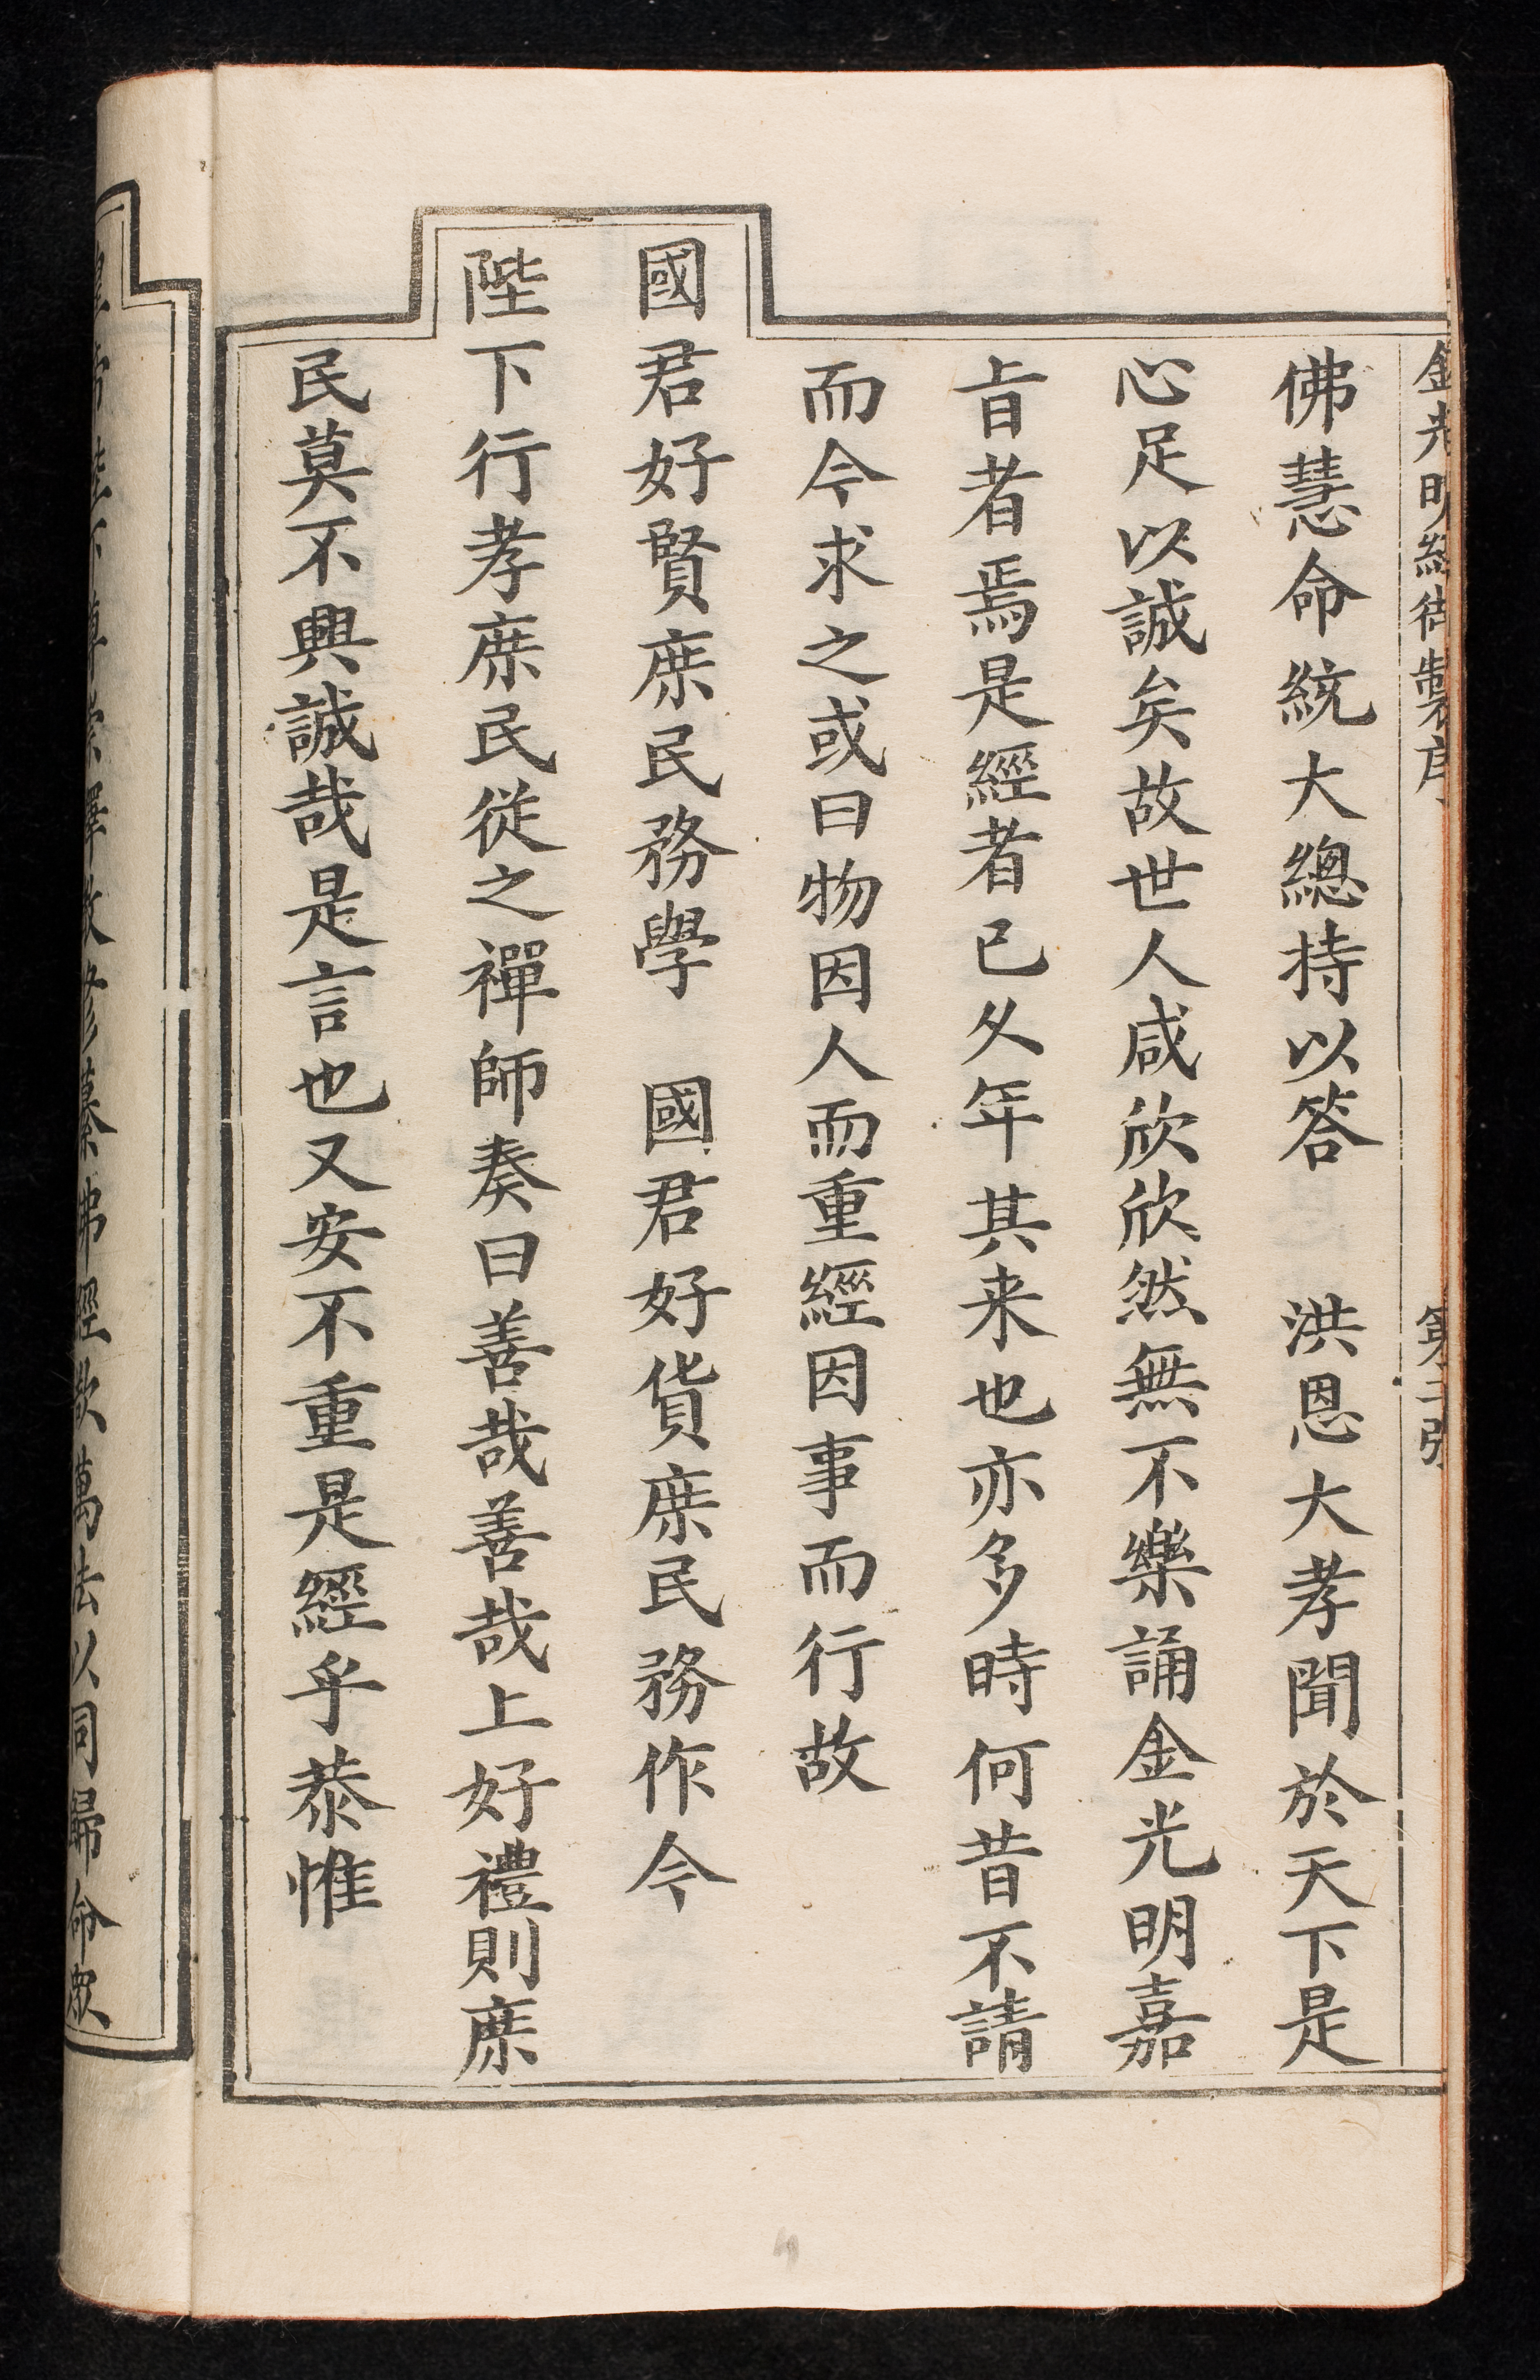 金光明經御製序 第三張
佛慧命統大總持以答 洪恩大孝聞於天下是
心足以誠矣故世人咸欣欣然無不樂誦金光明嘉
㫖者焉是經者已乆年其来也亦多時何昔不請
而今求之或曰物因人而重經因事而行故
國君好賢庶民務學 國君好貨庶民務作今
陛下行孝庶民從之禪師奏曰善哉善哉上好禮則庶
民莫不興誠哉是言也又安不重是經乎恭惟
敕修纂佛經欲萬法以同歸命眾